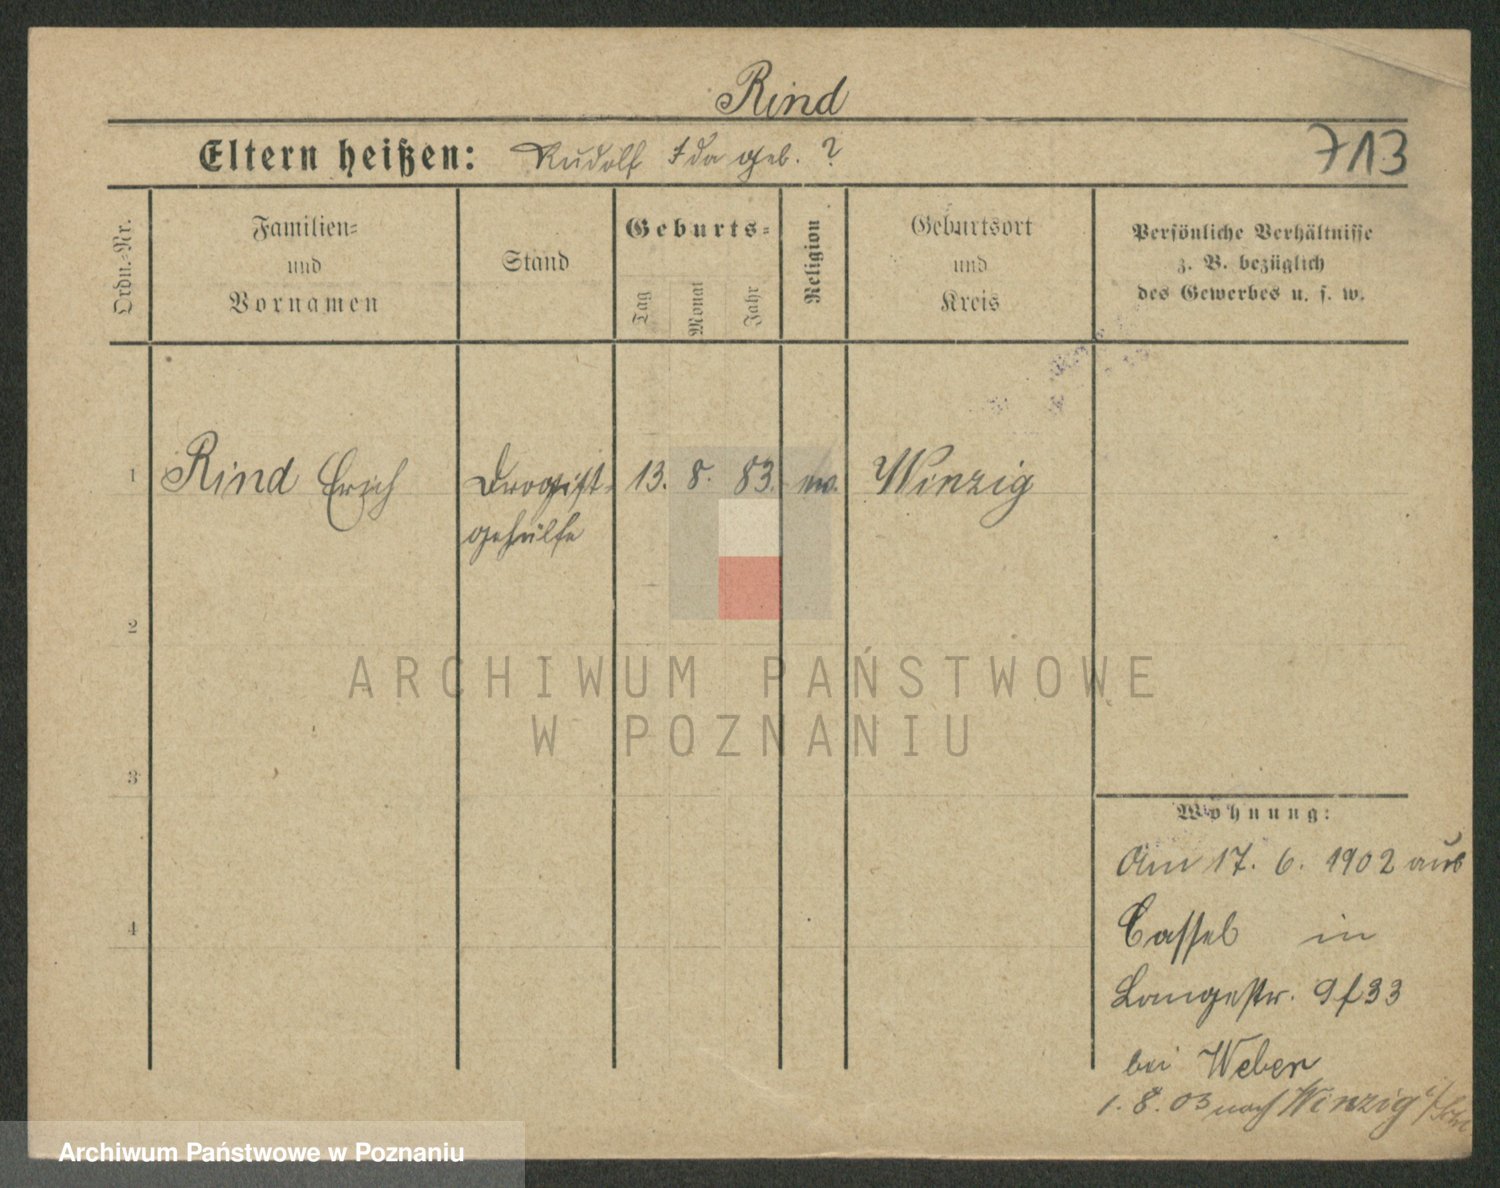 Rind
Eltern heißen: Rudolf Ida geb. ?
713
Ordn.-Nr.
Familien-
und
Vornamen
Stand
Geburts-
Tag
Monat
Jahr
Religion
Geburtsort
und
Kreis
Persönliche Verhältnisse
z. B. bezüglich
des Gewerbes u. s. w.
1 Rind Erich Drogist- 13. 8. 83. ev. Winzig
gehülfe
2
ARCHIWUM PAŃSTWOWE
W POZNANIU
3
Wohnung:
Am 17. 6. 1902 aus
4
Cassel in
Langestr. 9 f 33
bei Weber
1. 8. 03 nach Winzig i/Schl
Archiwum Państwowe w Poznaniu